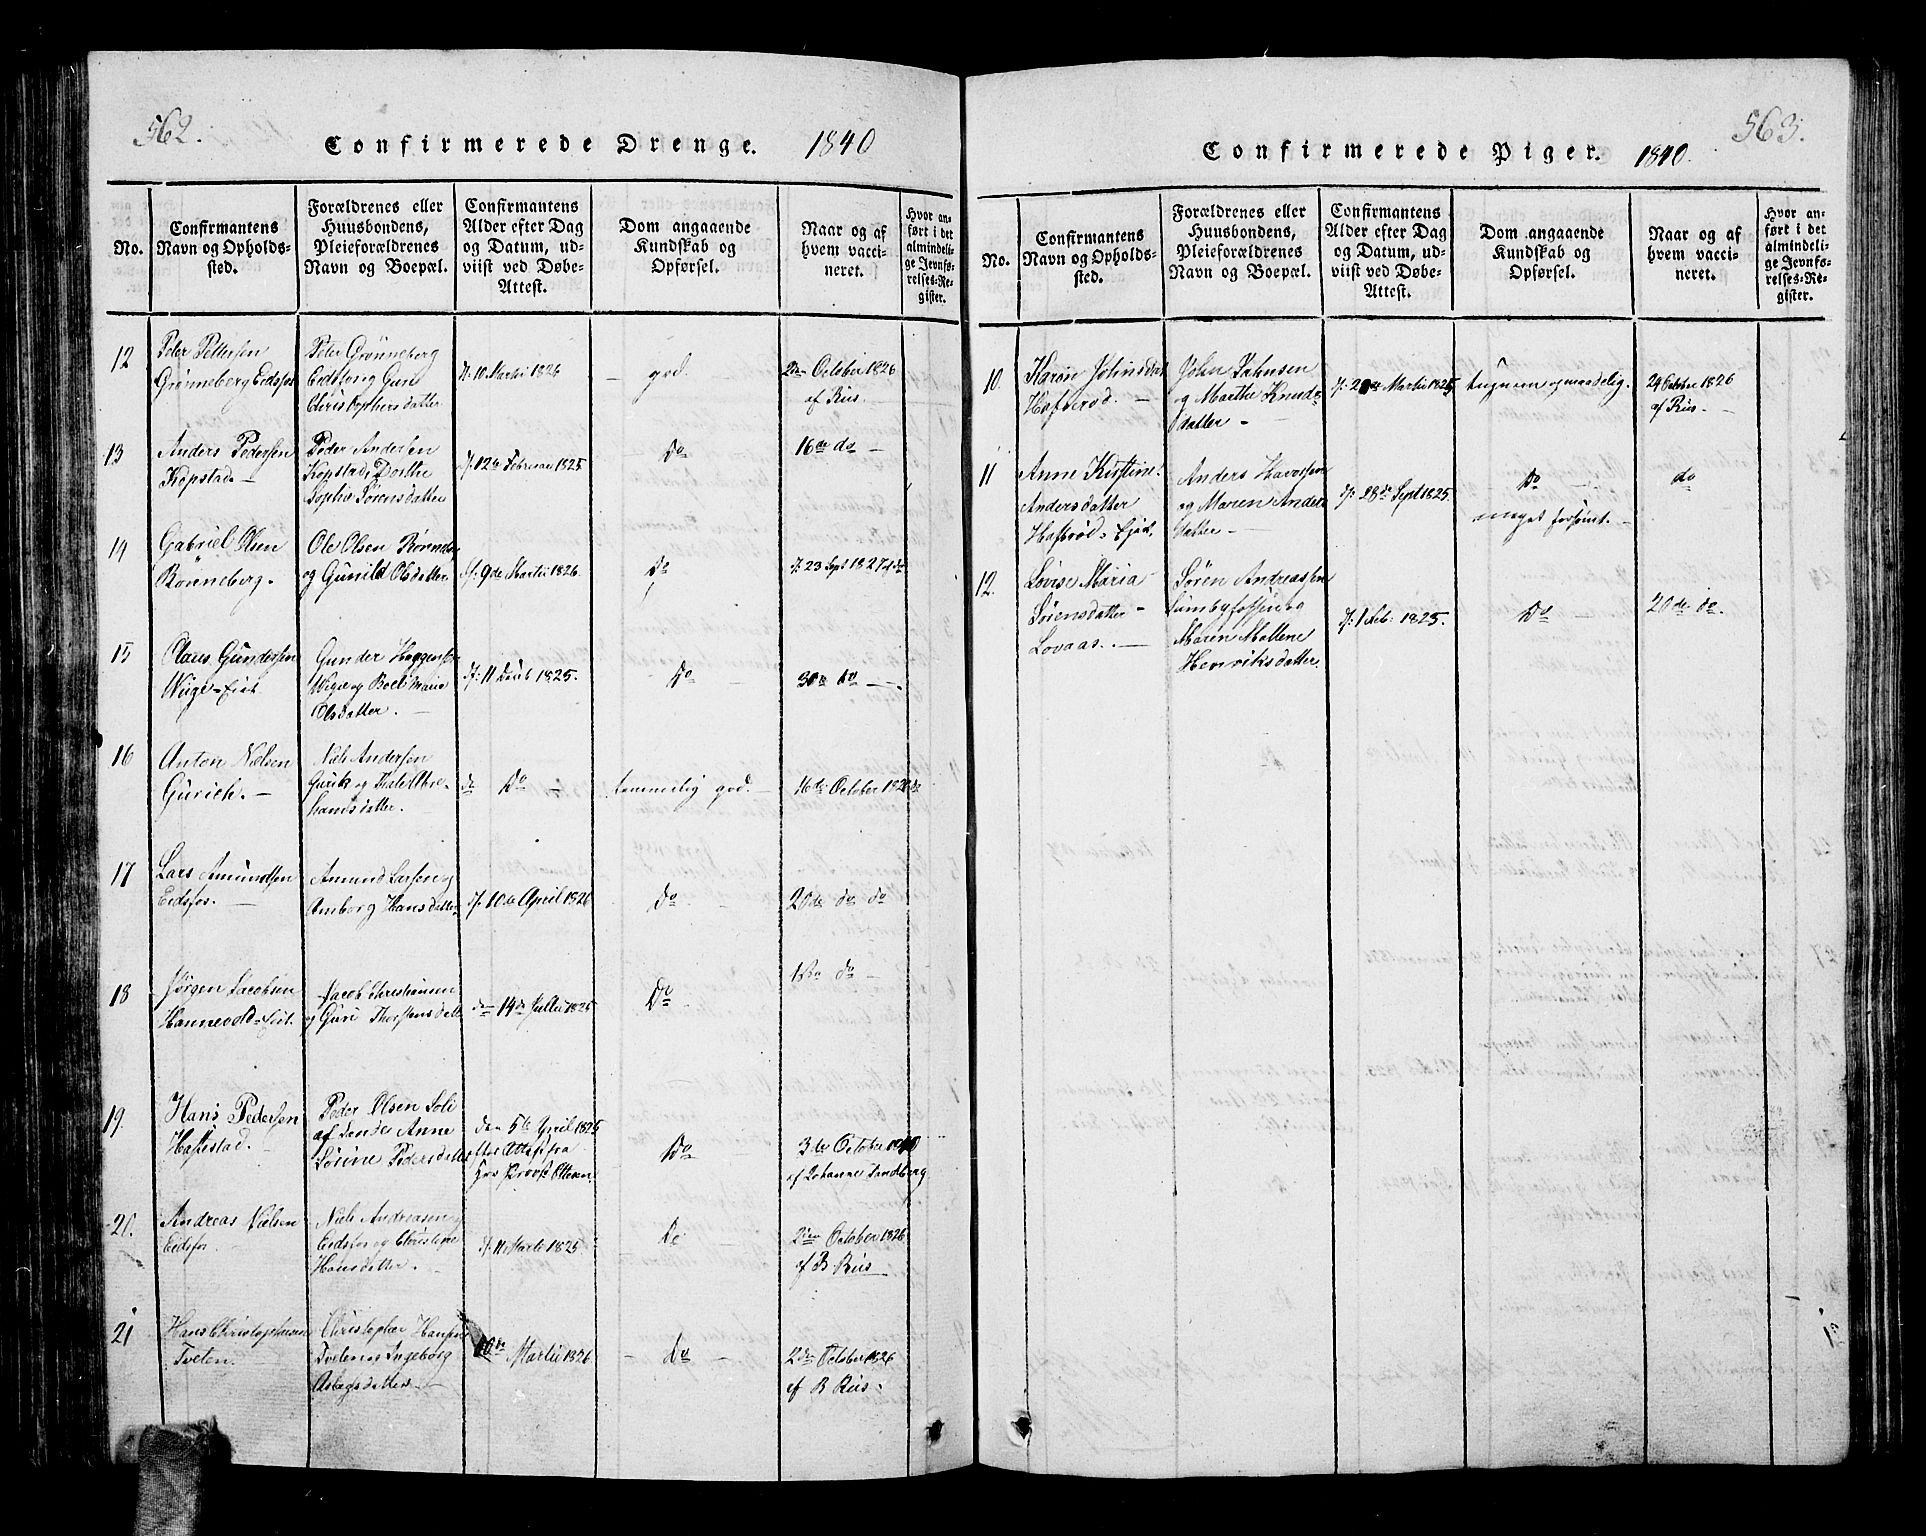 562.
Confirmerede Drenge. 1840
No.
Confirmantens
Navn og Opholds-
sted.
Forældrenes eller
Huusbondens,
Pleieforældrenes
Navn og Boepæl.
Confirmantens
Alder efter Dag
og Datum, ud-
viist ved Døbe-
Attest.
Dom angaaende
Kundskab og
Opførsel.
Naar og af
hvem vacci-
neret.
Hvor an-
ført i det
almindeli-
ge Jevnfø-
relses-Re-
gister.
12
Peter Pettersen
Grønneberg Eidsfos
Peter Grønneberg
Eidsfos og Guri
Christophersdatter
10 Martii 1826
god.
2den October 1826
af Riis
13
Anders Pedersen
Kopstad
Peder Andersen
Kopstad, Dorthe
Sophie Sørensdatter
12te Februar 1825
Do
16de do
14
Gabriel Olsen
Rønneberg.
Ole Olsen
og Gunild Olsdatter
9de Martii 1826.
Do
23 Sept 1827
15
Claus Gundersen
Gunder
og Boel Maria
Olsdatter.
11 1825.
Do
do
16
Anton Nielsen
Gurich.
Niels Andersen
og
hamsdatter.
do Do
temmelig god.
16de October 1826 do
17
Lars Amundsen
Eidsfos.
Amund Larsen og
Amborg Hansdatter
10de April 1826
do
20de do do
18
Jørgen Jacobsen
Hannevold
Jacob Christiansen
og Guri Thorstensdatter
14de Julii 1825
Do
do
19.
Hans Pedersen
Haslestad.
Peder Olsen Soli
af Sande Anne
Sørine Pedersdatter
den 5te April 1825
efter Attest fra
Hrr Provst Ottesen.
Do
3de October 1840
af Johanne Sandberg
20.
Andreas Nielsen
Eidsfos
Niels Andreasen og
Eidsfos og Christine
Hansdatter.
11 Martii 1825
Do
2den October 1826
af B Riis
21
Hans Christophersen
Tveten.
Christopher Hansen
Tveten og Ingeborg
Aslagsdatter
10de Martii 1826
Do
2den October 1826
af B Riis.
563.
Confirmerede Piger. 1840.
No.
Confirmantens
Navn og Opholds-
sted.
Forældrenes eller
Huusbondens,
Pleieforældrenes
Navn og Boepæl.
Confirmantens
Alder efter Dag
og Datum, ud-
viist ved Døbe-
Attest.
Dom angaaende
Kundskab og
Opførsel.
Naar og af
hvem vacci-
neret.
Hvor an-
ført i det
almindeli-
ge Jevnfø-
relses-Re-
gister.
10.
Karen Johnsdat
John Johnsen
og Marthe Knuds
datter
Martii 1825
tugsom og maadelig.
24 October 1826
af Riis
11
Anne Kirstine
Andersdatter
Anders
og Maren Anders
datter
28de Sept 1825.
Do
meget forsømt.
do
12.
Lovise Maria
Sørensdatter
Lovaas.
Søren Andreassen
og
Maren Mallene
Henriksdatter
1 Feb: 1825.
Do
20de do.